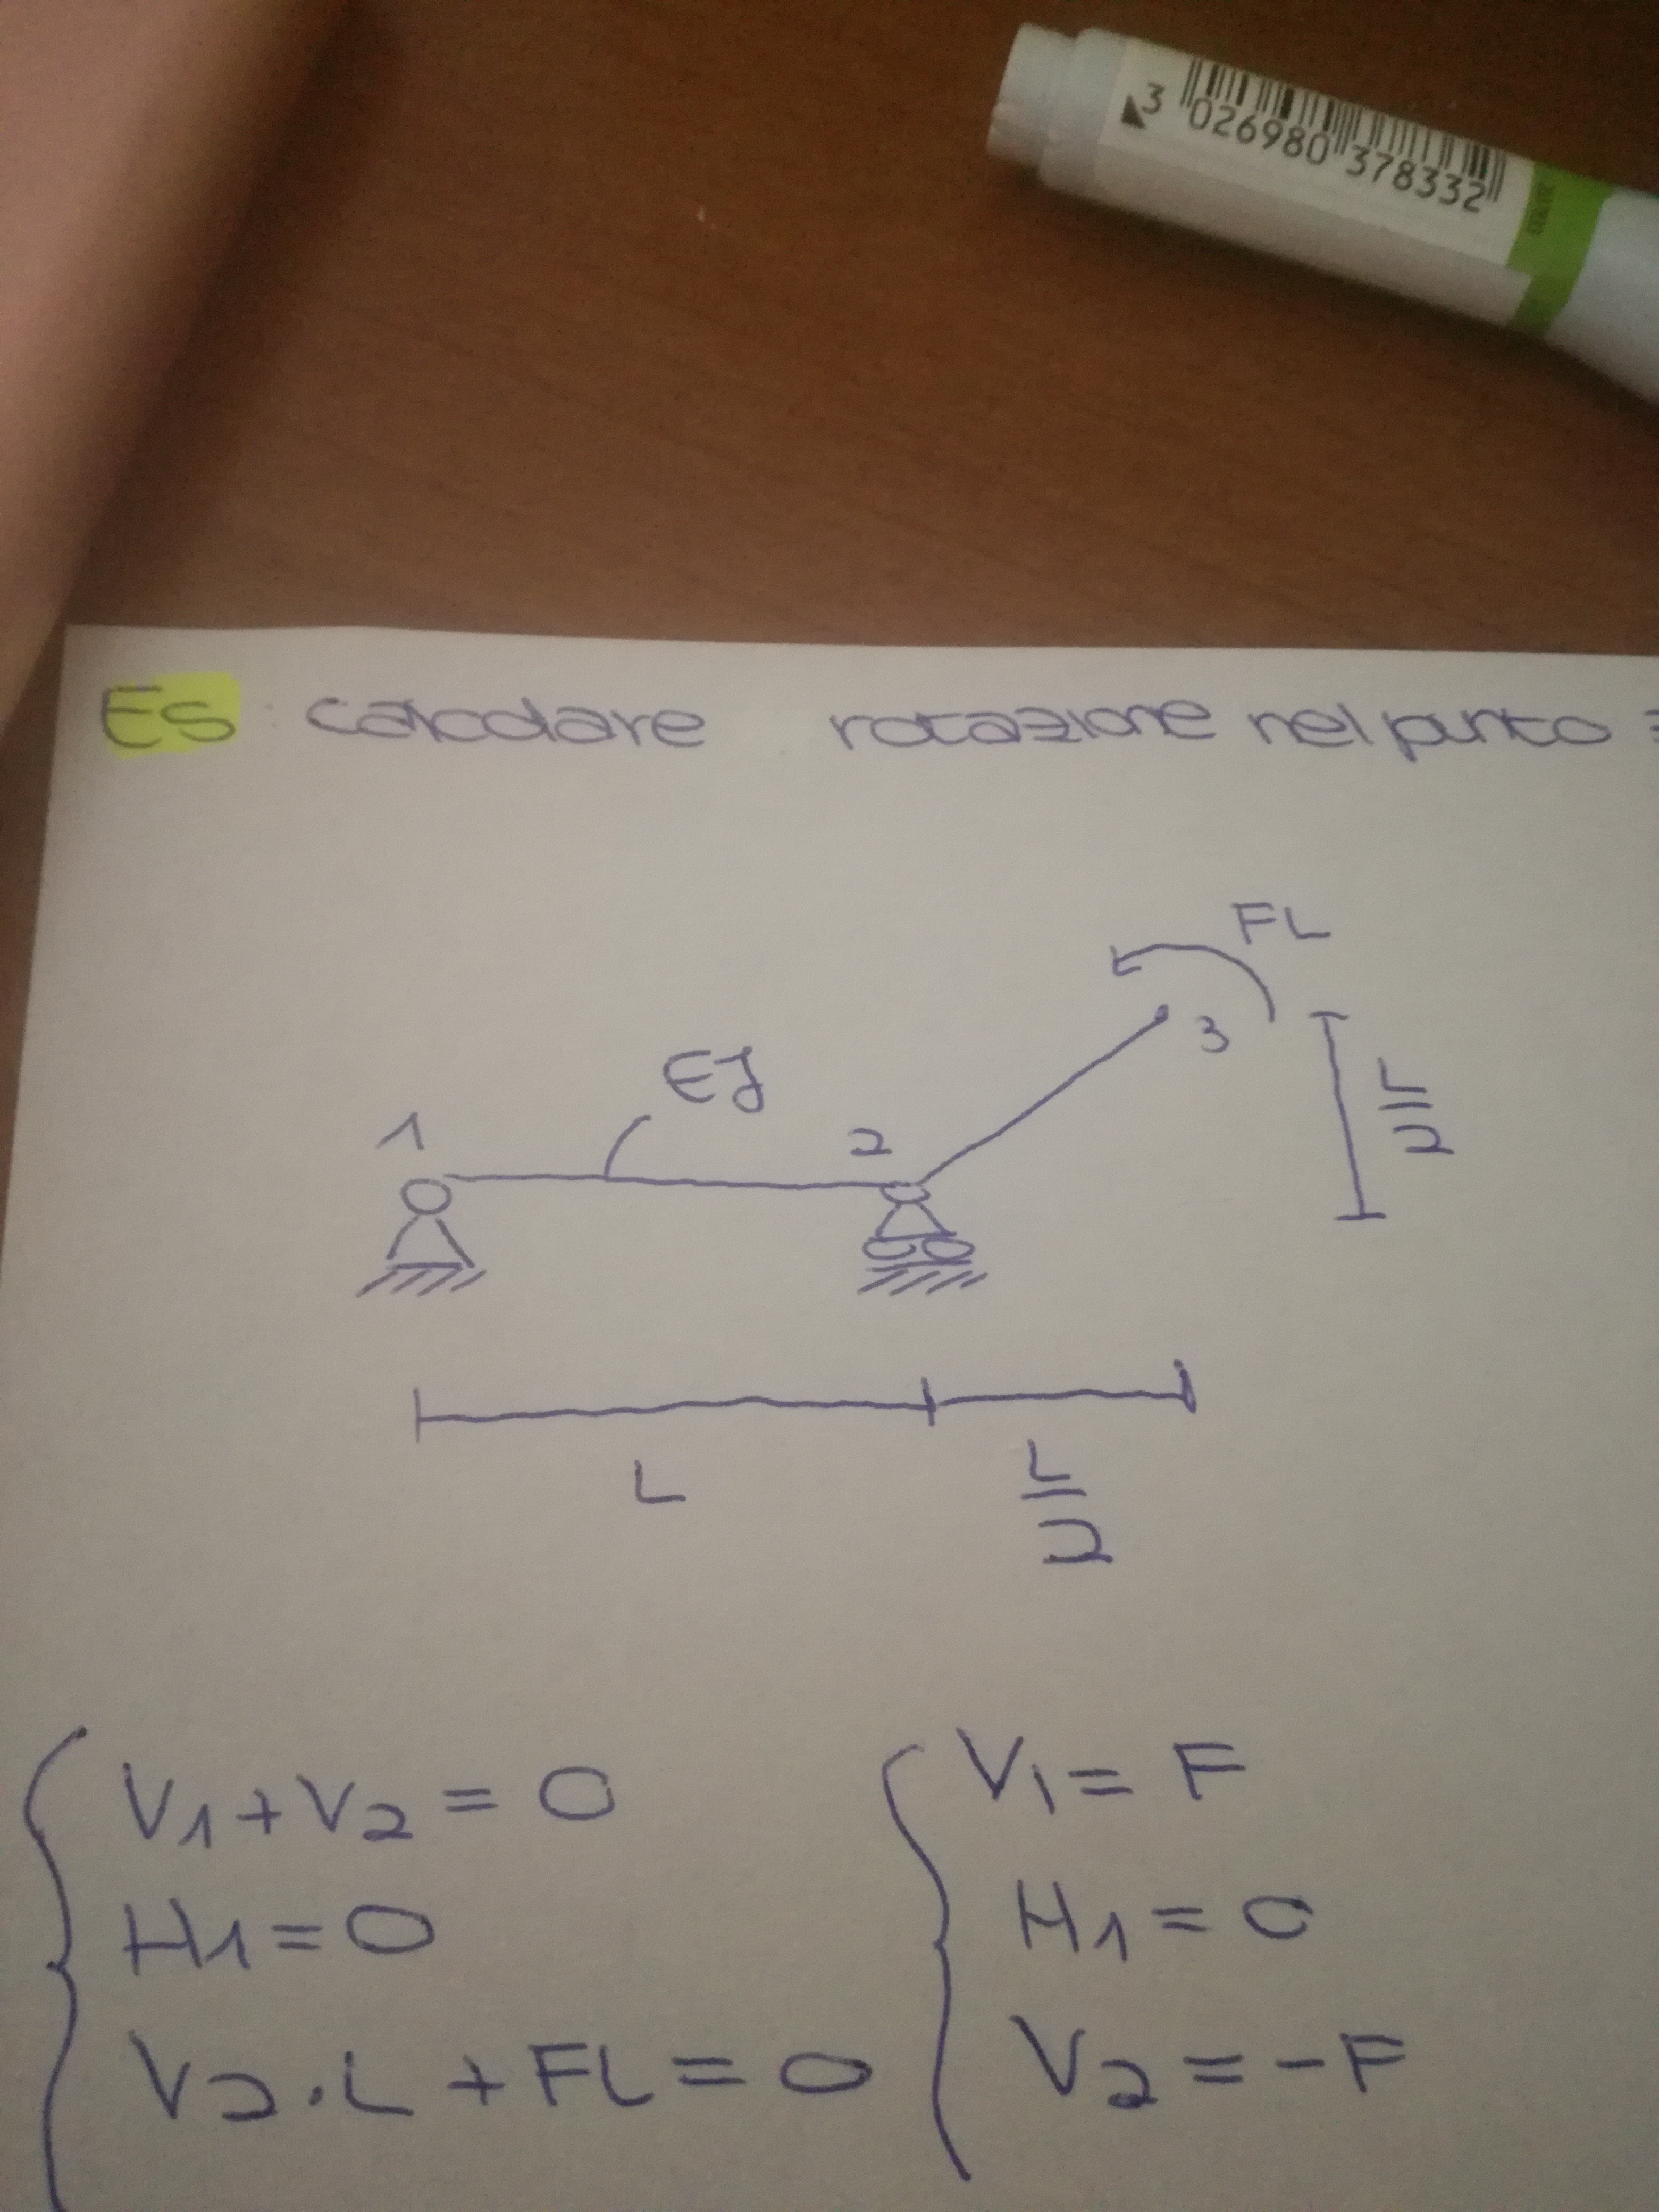 3 026980 378332
Es: calcolare rotazione nel punto
FL
3
L/2
EJ
1
2
L
L/2
V1+V2=0
H1=0
V2·L+FL=0
V1=F
H1=0
V2=-F